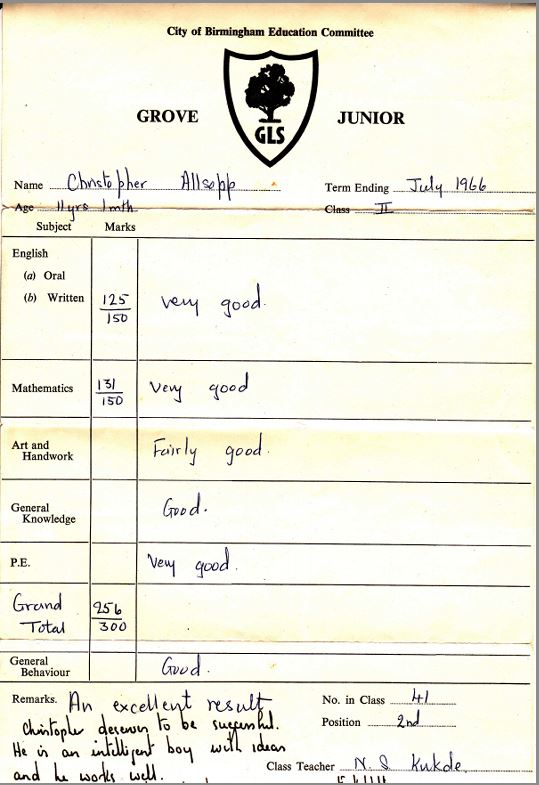 City of Birmingham Education Committee
GROVE JUNIOR
GLS
Name Christopher Allsopp Term Ending July 1966
Age 11yrs 1mth Class II
Subject Marks
English
(a) Oral
(b) Written 125/150 very good.
Mathematics 131/150 Very good
Art and Handwork Fairly good.
General Knowledge Good.
P.E. Very good.
Grand Total 256/300
General Behaviour Good.
Remarks. An excellent result No. in Class 41
Christopher deserves to be successful. Position 2nd
He is an intelligent boy with ideas
and he works well. Class Teacher N. S. Kukde.